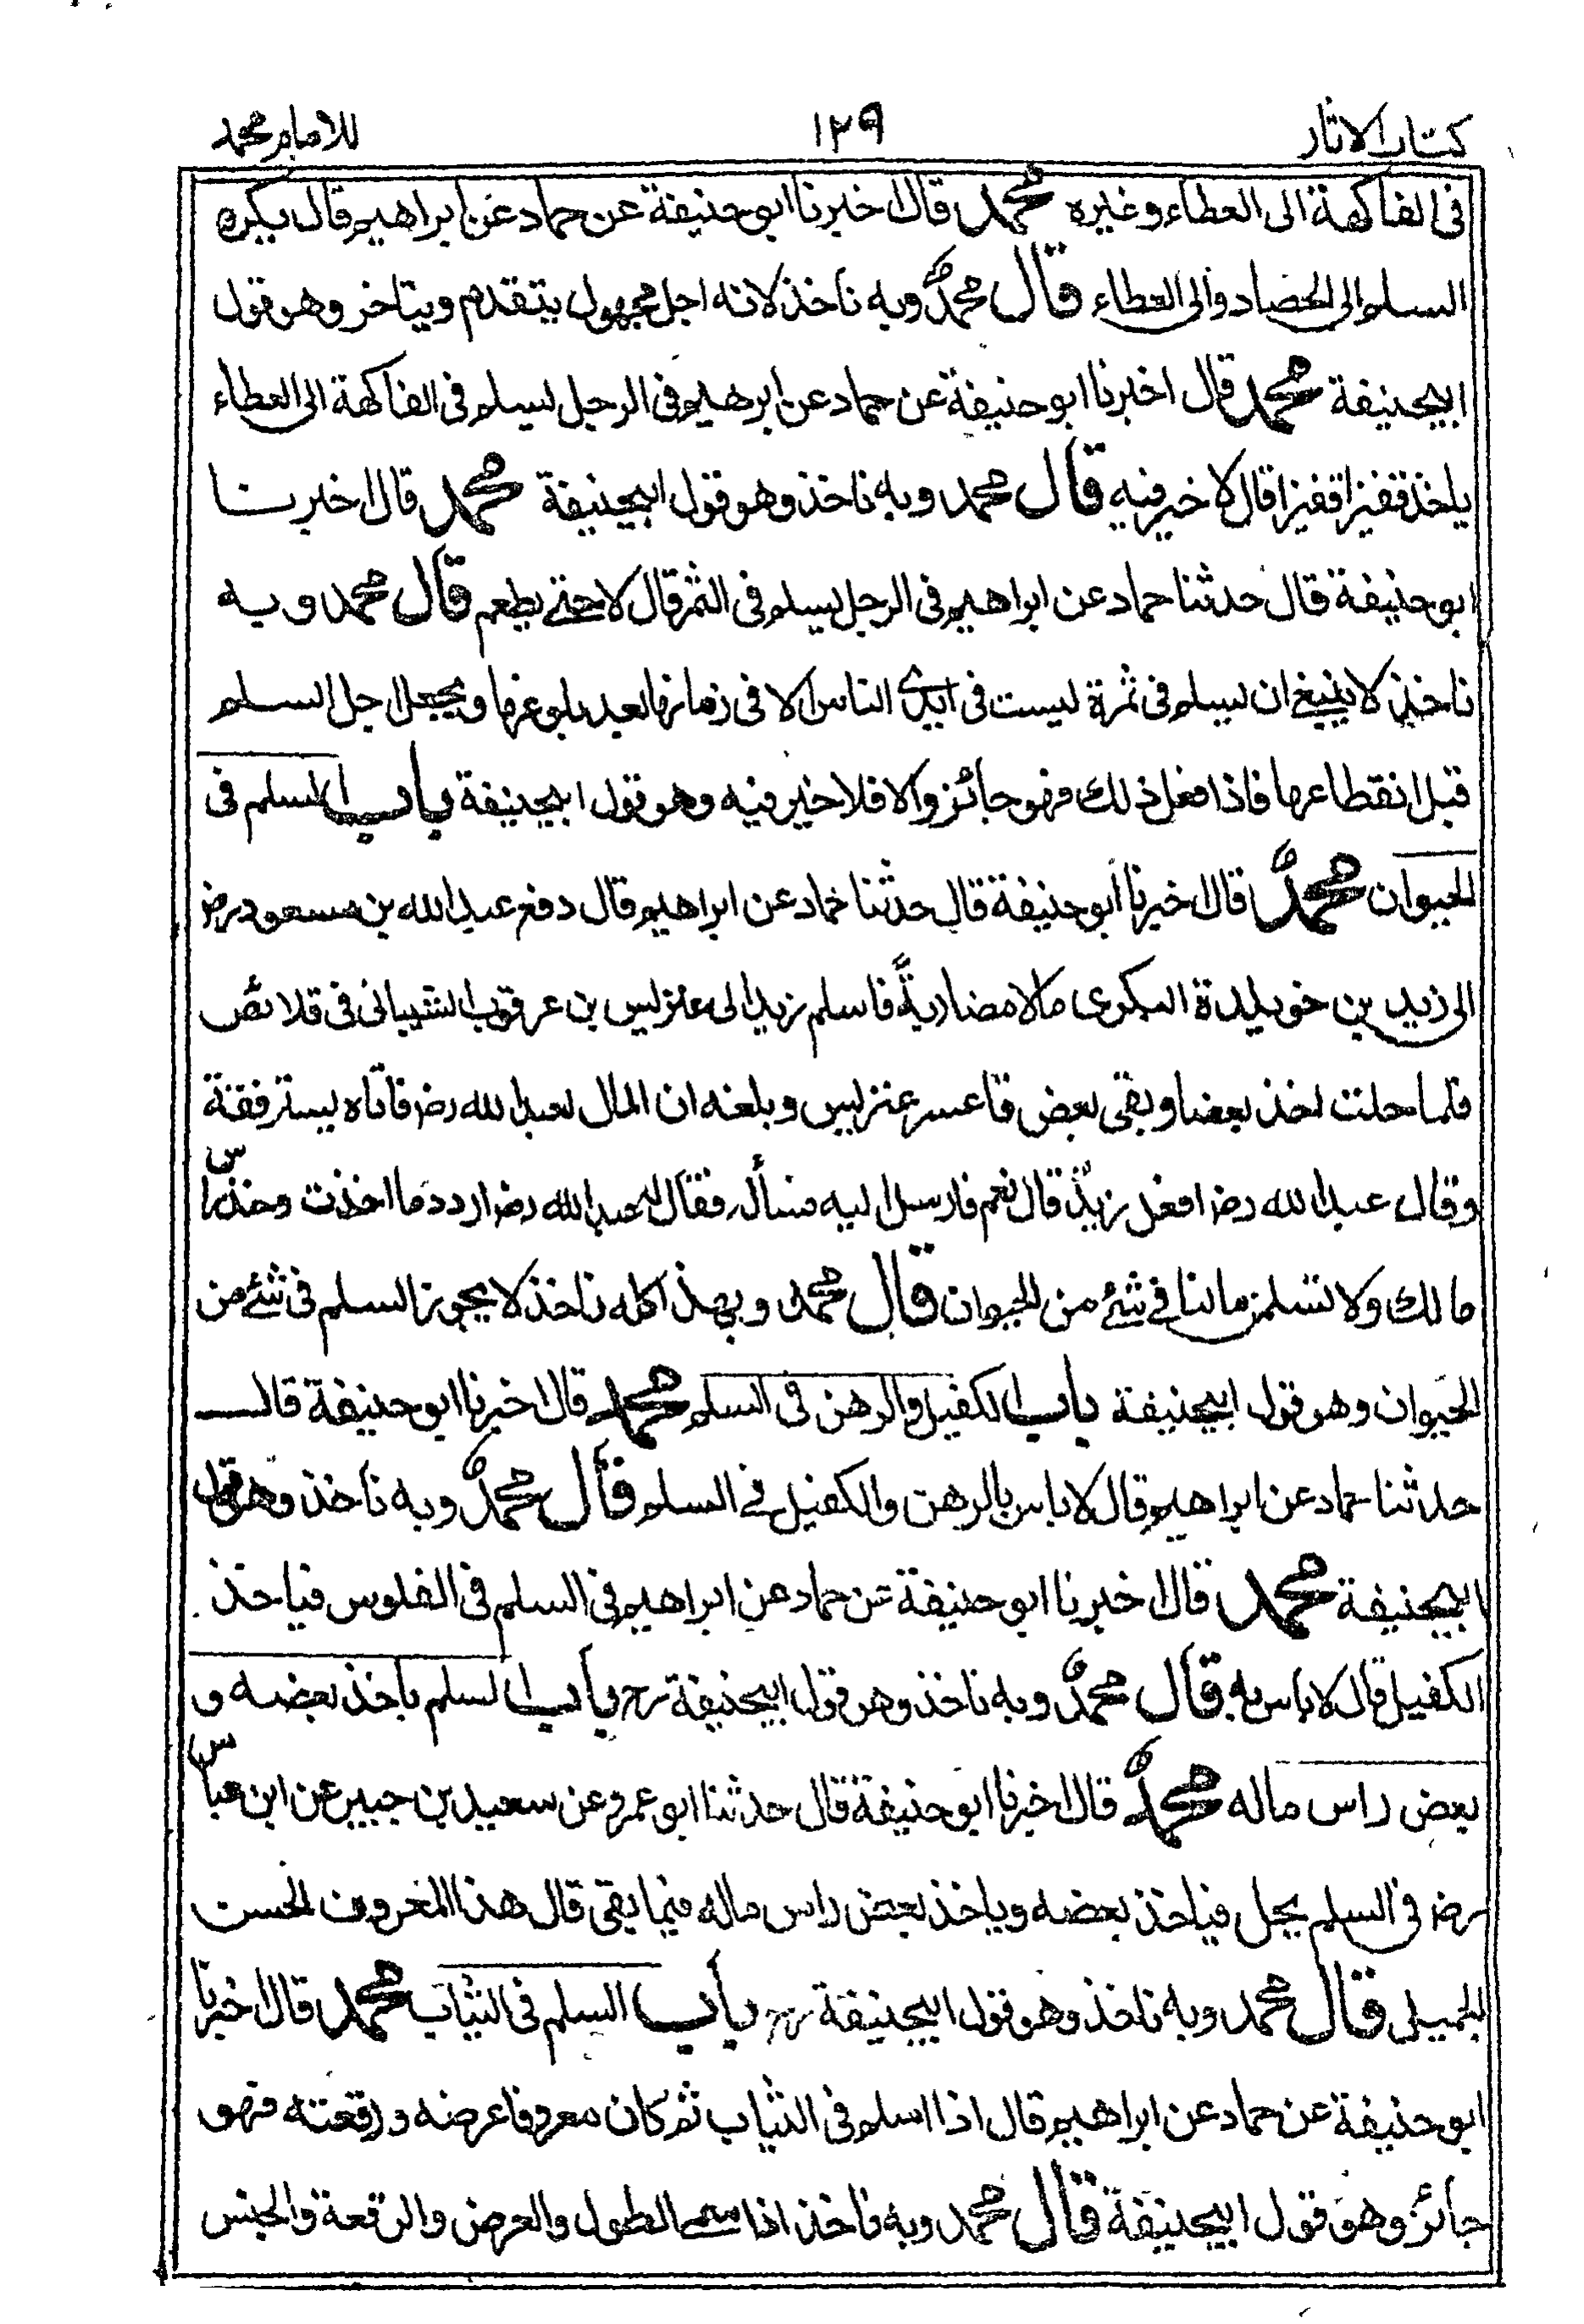 كتاب الاثار ١٢٩ للامام محمد
فى الفاكهة الى العطاء وغيره محمد قال اخبرنا ابو حنيفة عن حماد عن ابراهيم قال يكره
السلم الى الحصاد والى العطاء قال محمدؒ وبه ناخذ لانه اجل مجهول يتقدم ويتاخر وهو قول
ابيحنيفة محمد قال اخبرنا ابو حنيفة عن حماد عن ابرهيم فى الرجل يسلم فى الفاكهة الى العطاء
ياخذ قفيزا قفيزا قال لا خير فيه قال محمد وبه ناخذ وهو قول ابيحنيفة محمد قال اخبرنا
ابو حنيفة قال حدثنا حماد عن ابراهيم فى الرجل يسلم فى الثمر قال لا حتے يطعم قال محمد وبه
ناخذ لا ينبغے ان يسلم فى ثمرة ليست فى ايدى الناس الا فى زمانها بعد بلوغها ويجعل اجل السلم
قبل انقطاعها فاذا فعل ذلك فهو جائز والا فلا خير فيه وهو قول ابيحنيفة باب السلم فى
الحيوان محمدؒ قال اخبرنا ابو حنيفة قال حدثنا حماد عن ابراهيم قال دفع عبد الله بن مسعود رضـ
الى زيد بن خويلدة البكرى مالا مضاربة فاسلم زيد الى عتريس بن عرقوب الشيبانى فى قلائص
فلما حلت اخذ بعضا وبقى بعض فاعسر عتريس وبلغه ان المال لعبد الله رضـ فاتاه يسترفقه
وقال عبد الله رضـ افعل زيد قال نعم فارسل اليه فسأله فقال له عبد الله رضـ اردد ما اخذت وخذ راس
مالك ولا تسلمن مالنا فے شئ من الحيوان قال محمد وبهذا كله ناخذ لا يجوز السلم فى شئ من
الحيوان وهو قول ابيحنيفة باب الكفيل والرهن فى السلم محمد قال اخبرنا ابو حنيفة قال
حدثنا حماد عن ابراهيم قال لا باس بالرهن والكفيل فے السلم قال محمدؒ وبه ناخذ وهو قول
ابيحنيفة محمد قال اخبرنا ابو حنيفة عن حماد عن ابراهيم فى السلم فى الفلوس فياخذ
الكفيل قال لا باس به قال محمدؒ وبه ناخذ وهو قول ابيحنيفة رح باب السلم ياخذ بعضه و
بعض راس ماله محمدؒ قال اخبرنا ابو حنيفة قال حدثنا ابو عمرو عن سعيد بن جبير عن ابن عباس
رضـ فى السلم يحل فياخذ بعضه وياخذ بعض راس ماله فيما بقى قال هذا المعروف الحسن
الجميل قال محمد وبه ناخذ وهو قول ابيحنيفة رح باب السلم فى الثياب محمد قال اخبرنا
ابو حنيفة عن حماد عن ابراهيم قال اذا اسلم فى الثياب ثم كان معروفا عرضه ورقعته فهو
جائز وهو قول ابيحنيفة قال محمد وبه ناخذ اذا سمے الطول والعرض والرقعة والجنس